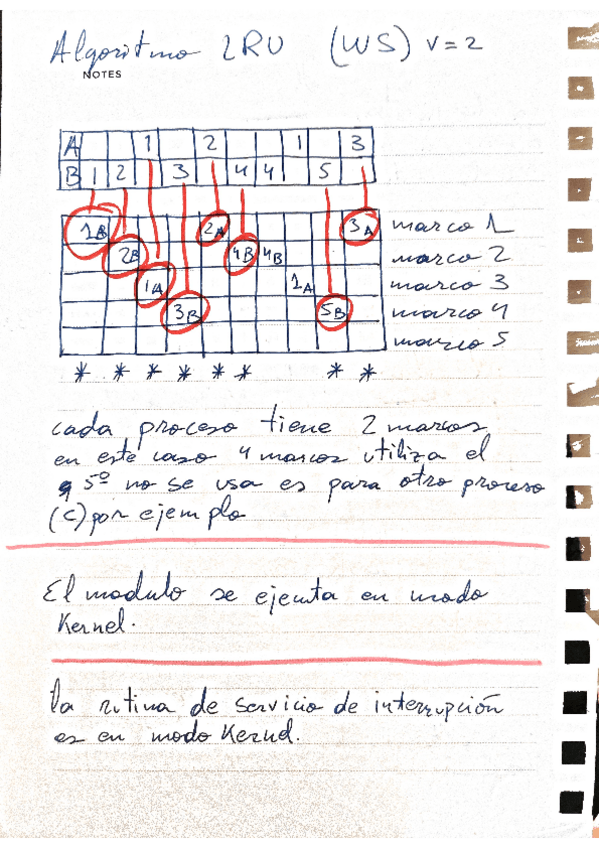 Algoritmo LRU (WS) V=2
NOTES
A 1 2 1 3
B 1 2 3 4 4 5
1B 2A 3A marco 1
2B 4B 4B marco 2
1A 1A marco 3
3B 5B marco 4
marco 5
* * * * * * * *
cada proceso tiene 2 marcos
en este caso 4 marcos utiliza el
5º no se usa es para otro proceso
(C) por ejemplo
El modulo se ejecuta en modo
Kernel.
la rutina de servicio de interrupción
es en modo Kernel.